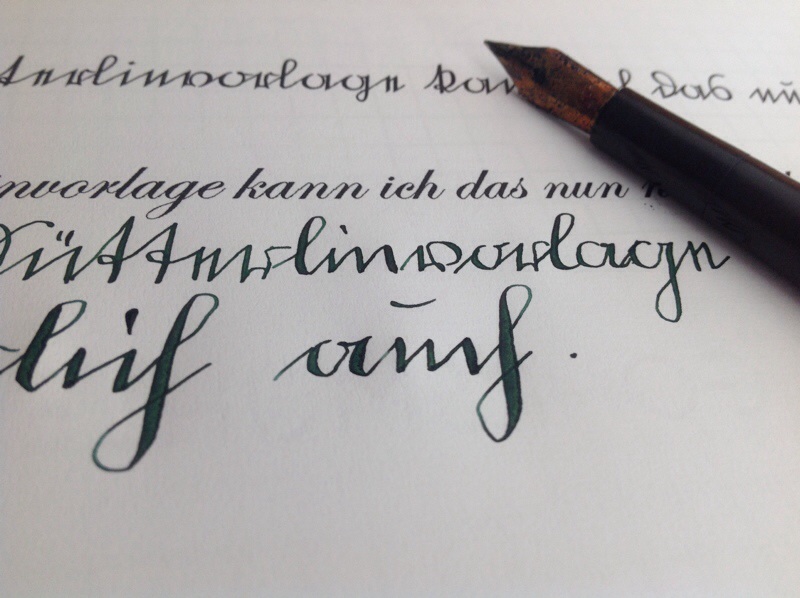 tterlinvorlage kann ich das nun
nvorlage kann ich das nun
Sütterlinvorlage
lich auch.